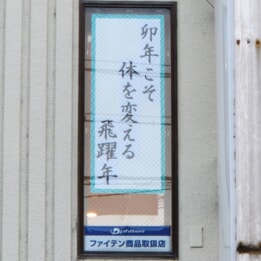 卯年こそ
体を変える
飛躍年
Phiten
ファイテン商品取扱店